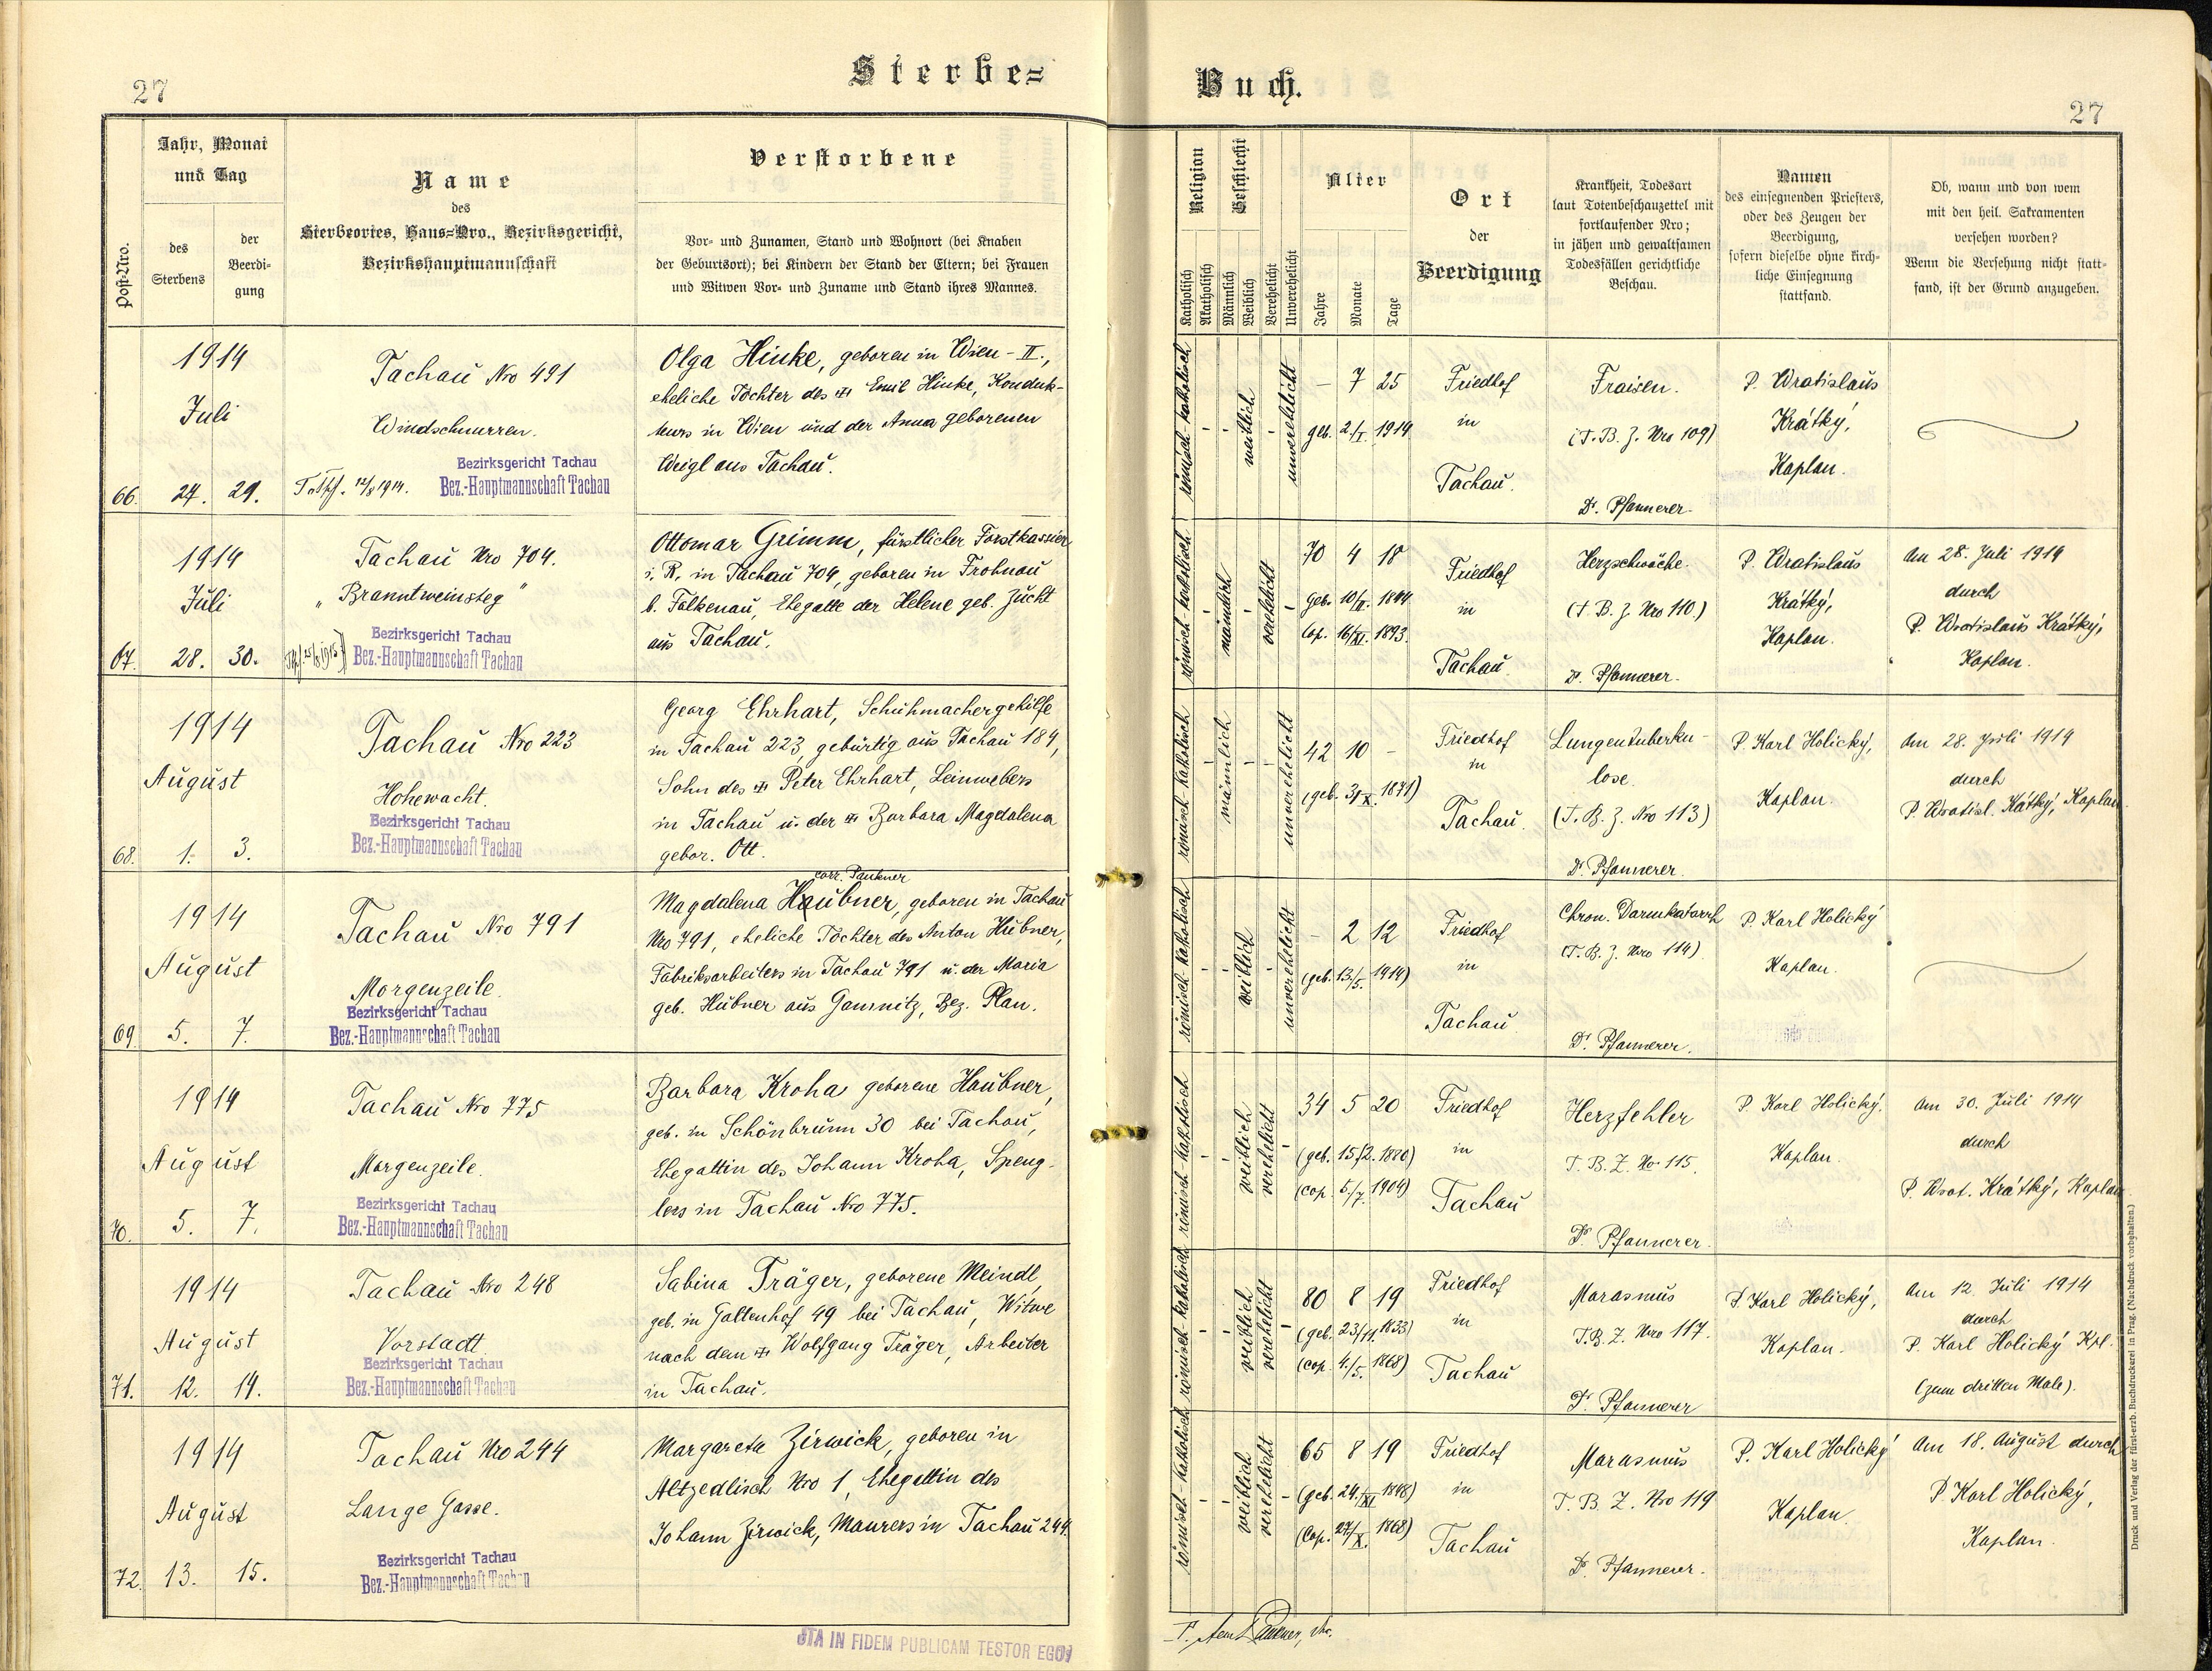 27
Sterbe=
Jahr, Monat
und Tag
Post-Nro.
des
Sterbens
der
Beerdi-
gung
Name
des
Sterbeortes, Haus=Nro., Bezirksgericht,
Bezirkshauptmannschaft
Verstorbene
Vor- und Zunamen, Stand und Wohnort (bei Knaben
der Geburtsort); bei Kindern der Stand der Eltern; bei Frauen
und Witwen Vor- und Zuname und Stand ihres Mannes.
1914
Juli
66. 27. 29.
Tachau Nro 491
Windschnurren.
12/8 1914.
Bezirksgericht Tachau
Bez.-Hauptmannschaft Tachau
Olga Hinke, geboren in Wien - II.,
eheliche Tochter des Emil Hinke, Konduk-
teurs in Wien und der Anna geborenen
Weigl aus Tachau.
1914
Juli
67. 28. 30.
Tachau Nro 704.
"Branntweinsteg"
Bezirksgericht Tachau
Bez.-Hauptmannschaft Tachau
Ottomar Grimm, fürstlicher Forstkassier
i. R. in Tachau 704, geboren in Frohnau
b. Falkenau, Ehegatte der Helene geb. Zucht
aus Tachau.
1914
August
68. 1. 3.
Tachau Nro 223
Hohewacht.
Bezirksgericht Tachau
Bez.-Hauptmannschaft Tachau
Georg Ehrhart, Schuhmachergehilfe
in Tachau 223, gebürtig aus Tachau 184,
Sohn des Peter Ehrhart, Leinwebers
in Tachau u. der Barbara Magdalena
gebor. Ott.
1914
August
69. 5. 7.
Tachau Nro 791
Morgenzeile.
Bezirksgericht Tachau
Bez.-Hauptmannschaft Tachau
corr. Paukner
Magdalena Haubner, geboren in Tachau
Nro 791, eheliche Tochter des Anton Hübner,
Fabriksarbeiters in Tachau 791 u. der Maria
geb. Hübner aus Gamnitz, Bez. Plan.
1914
August
70. 5. 7.
Tachau Nro 775
Morgenzeile.
Bezirksgericht Tachau
Bez.-Hauptmannschaft Tachau
Barbara Kroha geborene Haubner,
geb. in Schönbrunn 30 bei Tachau,
Ehegattin des Johann Kroha, Speng-
lers in Tachau Nro 775.
1914
August
71. 12. 14.
Tachau Nro 248
Vorstadt.
Bezirksgericht Tachau
Bez.-Hauptmannschaft Tachau
Sabina Träger, geborene Meindl,
geb. in Galtenhof 49 bei Tachau, Witwe
nach dem Wolfgang Träger, Arbeiter
in Tachau.
1914
August
72. 13. 15.
Tachau Nro 244
Lange Gasse.
Bezirksgericht Tachau
Bez.-Hauptmannschaft Tachau
Margareta Zirwick, geboren in
Altzedlisch Nro 1, Ehegattin des
Johann Zirwick, Maurers in Tachau 244.
ITA IN FIDEM PUBLICAM TESTOR EGO
Buch.
27
Religion
Katholisch
Akatholisch
Geschlecht
Männlich
Weiblich
Verehelicht
Unverehelicht
Alter
Jahre
Monate
Tage
Ort
der
Beerdigung
Krankheit, Todesart
laut Totenbeschauzettel mit
fortlaufender Nro;
in jähen und gewaltsamen
Todesfällen gerichtliche
Beschau.
Namen
des einsegnenden Priesters,
oder des Zeugen der
Beerdigung,
sofern dieselbe ohne kirch-
liche Einsegnung
stattfand.
Ob, wann und von wem
mit den heil. Sakramenten
versehen worden?
Wenn die Versehung nicht statt-
fand, ist der Grund anzugeben.
römisch-katholisch
weiblich
unverehelicht
- 7 25
geb. 2/I. 1914
Friedhof
in
Tachau.
Fraisen.
(T. B. Z. Nro 109)
Dr. Pfannerer.
P. Wratislaus
Krátký,
Kaplan.
römisch-katholisch
männlich
verehelicht
70 4 18
geb. 10/II. 1844
Cop. 16/XI. 1893.
Friedhof
in
Tachau.
Herzschwäche.
(T. B. Z. Nro 110)
Dr. Pfannerer.
P. Wratislaus
Krátký,
Kaplan.
Am 28. Juli 1914
durch
P. Wratislaus Krátký,
Kaplan.
römisch-katholisch
männlich
unverehelicht
42 10 -
(geb. 31/X. 1871)
Friedhof
in
Tachau.
Lungentuberku-
lose.
(T. B. Z. Nro 113)
Dr. Pfannerer.
P. Karl Holický,
Kaplan.
Am 28. Juli 1914
durch
P. Wratisl. Kátký, Kaplan.
römisch-katholisch
weiblich
unverehelicht
- 2 12
(geb. 13./5. 1914)
Friedhof
in
Tachau.
Chron. Darmkatarrh
(T. B. Z. Nro 114)
Dr. Pfannerer.
P. Karl Holický
Kaplan.
römisch-katholisch
weiblich
verehelicht
34 5 20
(geb. 15/2. 1880)
(cop. 5./7. 1904)
Friedhof
in
Tachau
Herzfehler
T. B. Z. No 115.
Dr. Pfannerer.
P. Karl Holický,
Kaplan.
Am 30. Juli 1914
durch
P. Wrat. Krátký, Kaplan
römisch-katholisch
weiblich
verehelicht
80 8 19
(geb. 23/11. 1833)
(cop. 4./5. 1868)
Friedhof
in
Tachau
Marasmus
T. B. Z. Nro 117.
Dr. Pfannerer
P. Karl Holický,
Kaplan.
Am 12. Juli 1914
durch
P. Karl Holický Kpl.
(zum dritten Male).
römisch-katholisch
weiblich
verehelicht
65 8 19
(geb. 24./XI. 1848)
(Cop. 27/X. 1868)
Friedhof
in
Tachau
Marasmus
T. B. Z. Nro 119
Dr. Pfannerer.
P. Karl Holický
Kaplan.
Am 18. August durch
P. Karl Holický,
Kaplan.
Druck und Verlag der fürst-erzb. Buchdruckerei in Prag. (Nachdruck vorbehalten.)
Paukner,